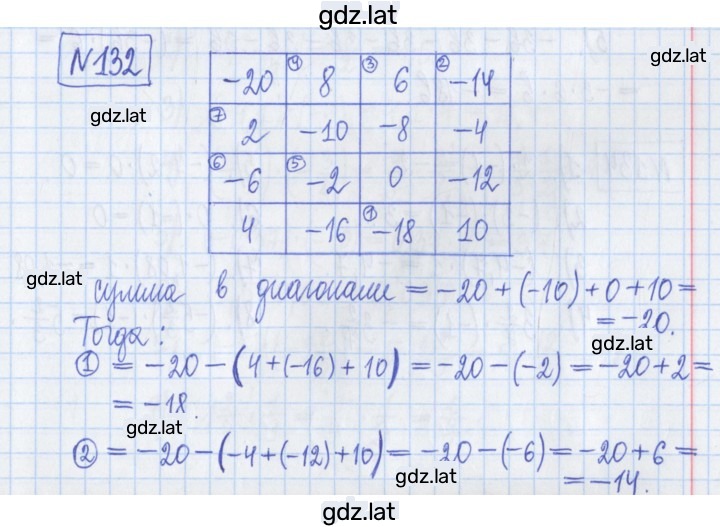 gdz.lat
№132
gdz.lat
gdz.lat
-20 ④ 8 ③ 6 ② -14
⑦ 2 -10 -8 -4
⑥ -6 ⑤ -2 0 -12
4 -16 ① -18 10
gdz.lat
сумма в диагонали = -20 + (-10) + 0 + 10 =
= -20.
Тогда:
gdz.lat
① = -20 - (4 + (-16) + 10) = -20 - (-2) = -20 + 2 =
= -18.
gdz.lat
② = -20 - (-4 + (-12) + 10) = -20 - (-6) = -20 + 6 =
gdz.lat
= -14.
gdz.lat